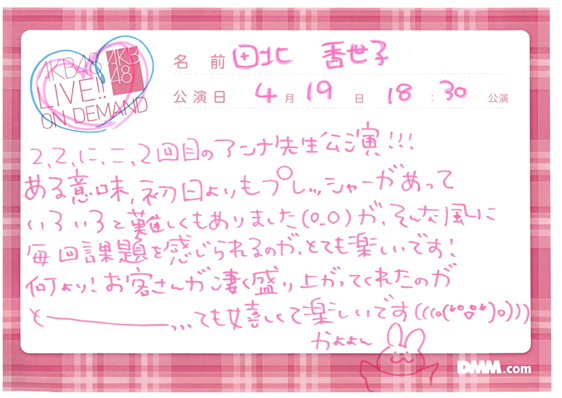 AKB48 LIVE!! ON DEMAND
AKB48
名前 田北 香世子
公演日 4月19日 18:30 公演
2、2、に、二、2回目のアンナ先生公演!!!
ある意味、初日よりもプレッシャーがあって
いろいろと難しくもありました(o_o)が、そんな風に
毎回課題を感じられるのが、とても楽しいです!
何より!お客さんが凄く盛り上がってくれたのが
と———、、、ても嬉しくて楽しいです(((o(*°▽°*)o)))
かよよん
DMM.com